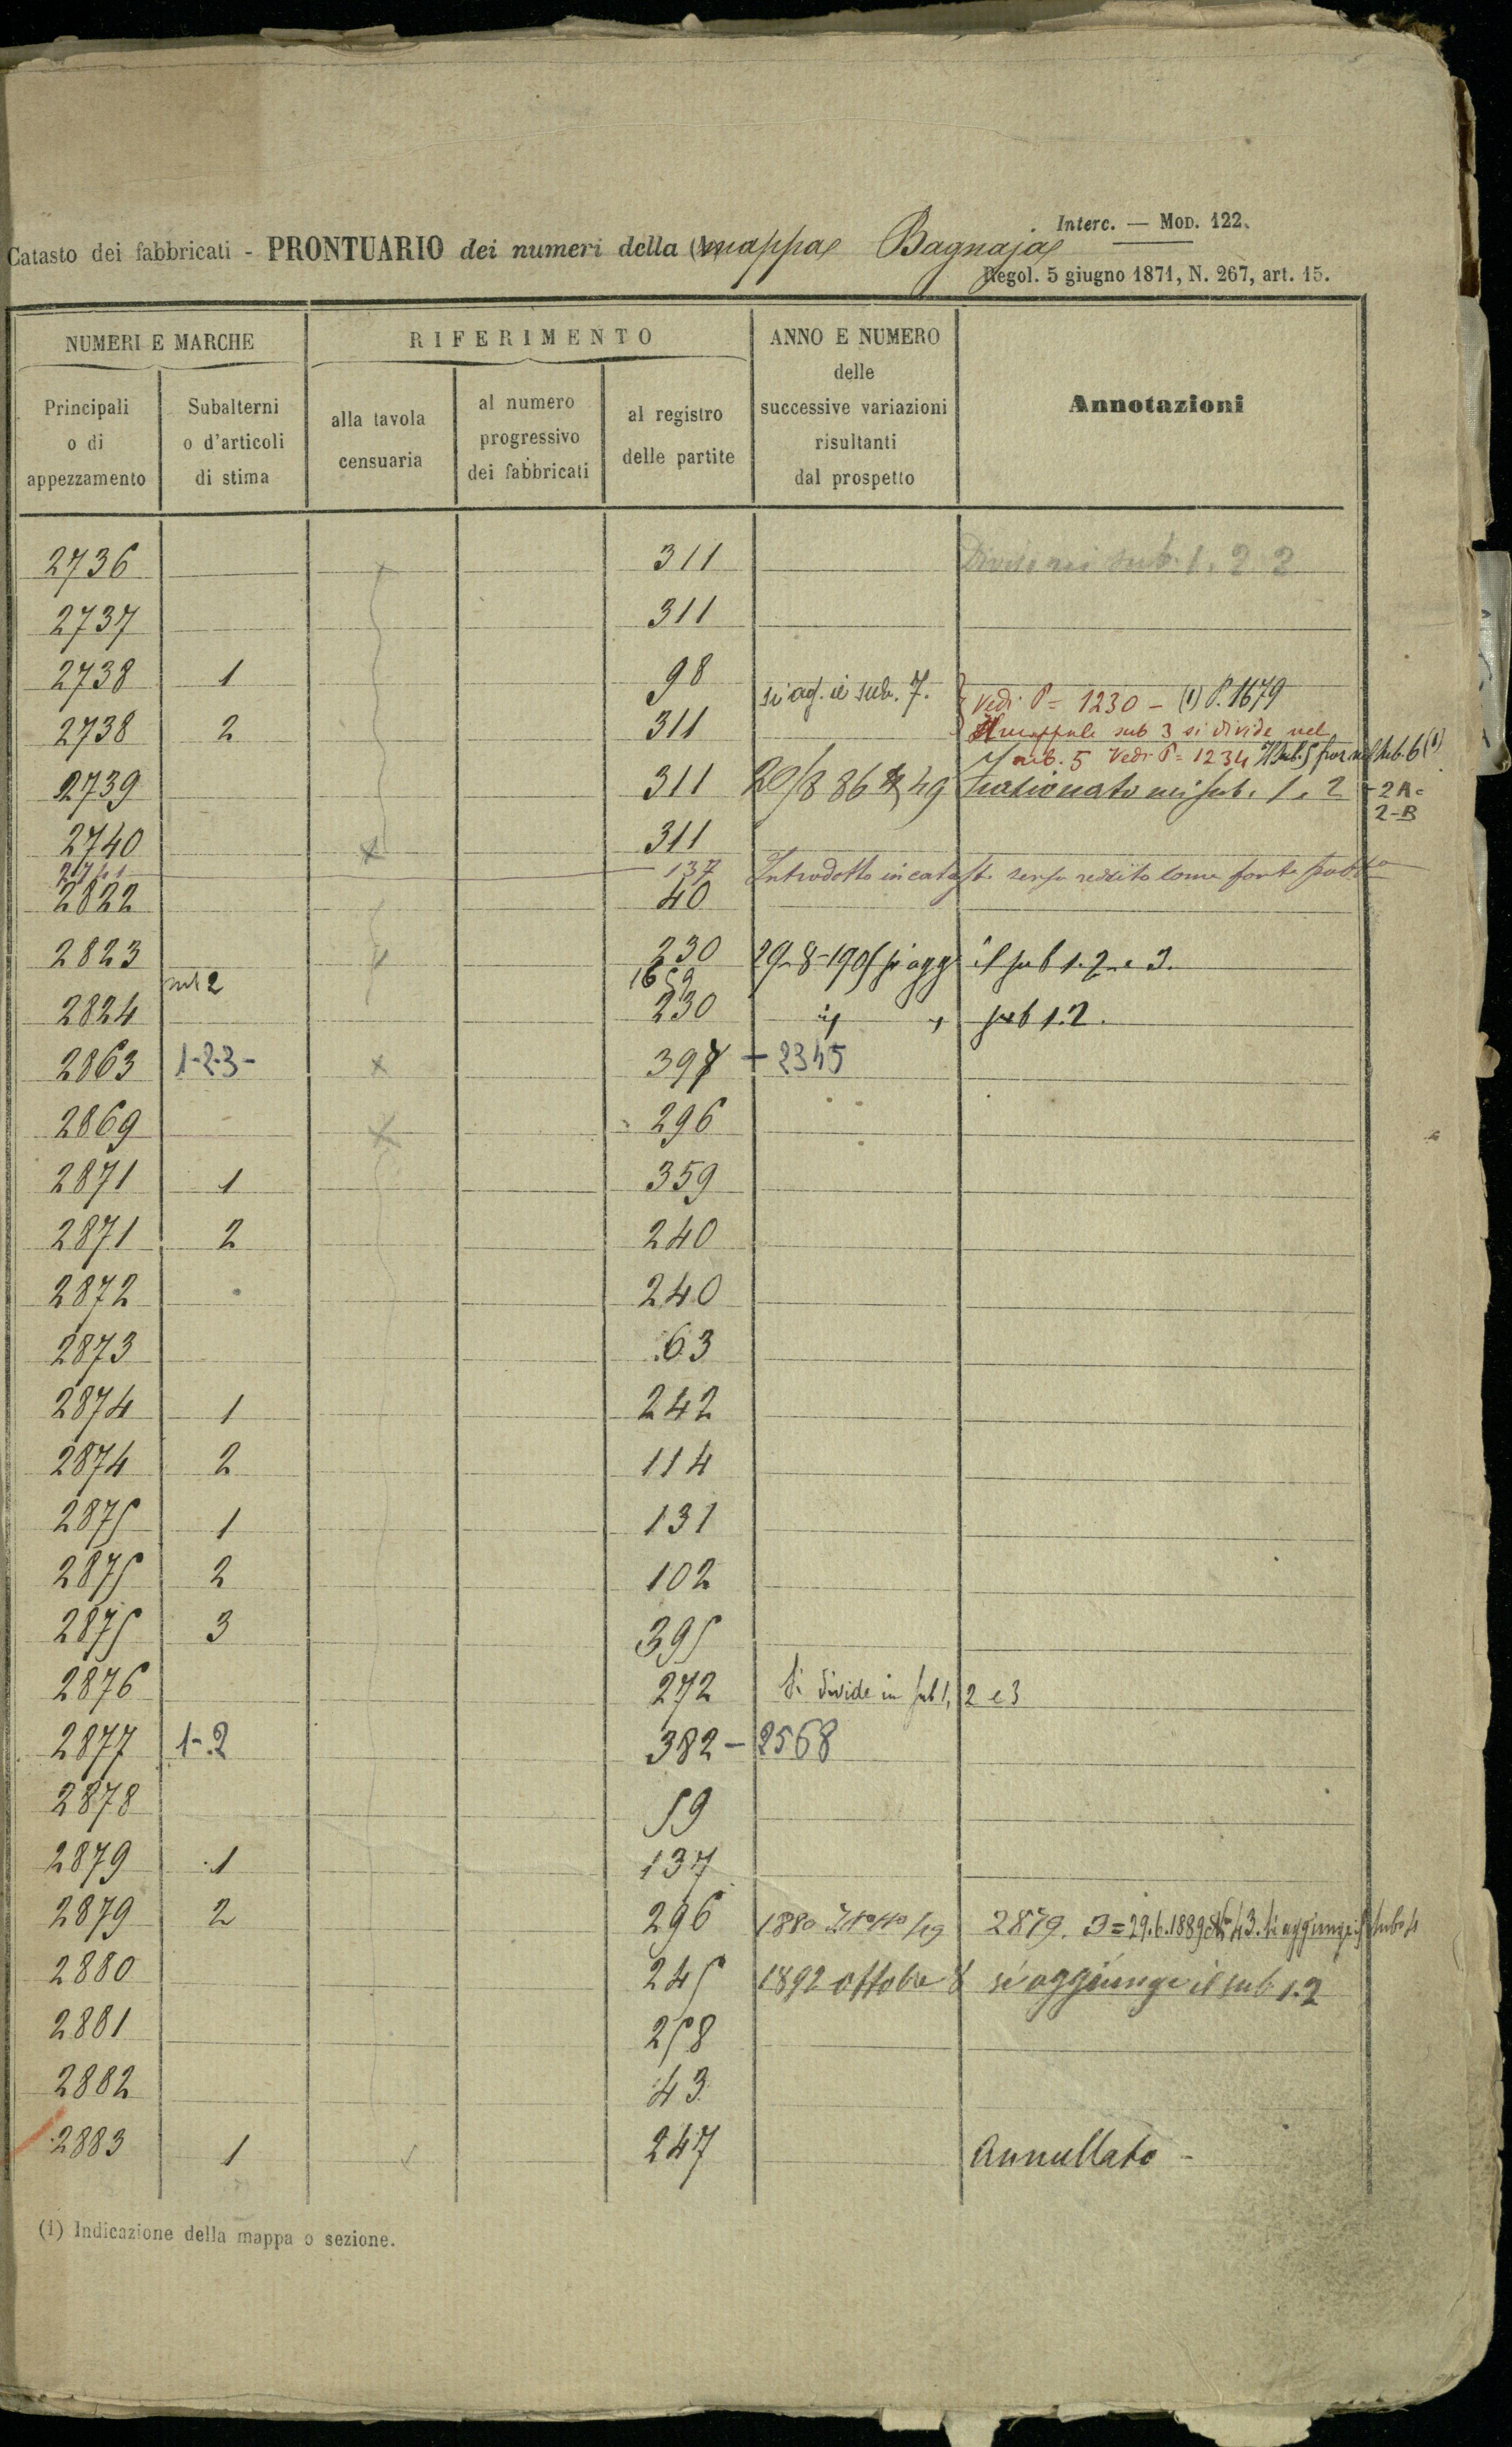 Interc. — Mod. 122.
Catasto dei fabbricati - PRONTUARIO dei numeri della (1) mappa Bagnaja
Regol. 5 giugno 1871, N. 267, art. 15.
NUMERI E MARCHE RIFERIMENTO ANNO E NUMERO delle successive variazioni risultanti dal prospetto Annotazioni
Principali o di appezzamento Subalterni o d'articoli di stima alla tavola censuaria al numero progressivo dei fabbricati al registro delle partite
2736 311 sub. 1. 2
2737 311
2738 1 98 si ag. il sub. 7. Vedi P = 1230 - (1) P. 1679
2738 2 311 Il mappale sub 3 si divide nel
sub. 5 Vedi P = 1234 sub. 6 (1)
2739 311 20/8 86 49 frazionato nei sub. 1. 2 - 2A =
2-B
2740 311
137 Introdotto in catasto senza reddito come
2822 40
2823 230 29-8-1905 si agg il sub 1. 2 e 3.
sub 2 1659
2824 230 " " sub 1. 2.
2863 1-2-3- 397 + 2345
2869 296
2871 1 359
2871 2 240
2872 240
2873 63
2874 1 242
2874 2 114
2875 1 131
2875 2 102
2875 3 395
2876 272 Si divide in sub 1, 2 e 3
2877 1-2 382 - 2568
2878 59
2879 1 137
2879 2 296 1880 2879. 3 = 29.6.1889 43. si aggiunge il sub 4
2880 245 1892 ottobre 8 si aggiunge il sub 1. 2
2881 258
2882 43
2883 1 247 Annullato -
(1) Indicazione della mappa o sezione.